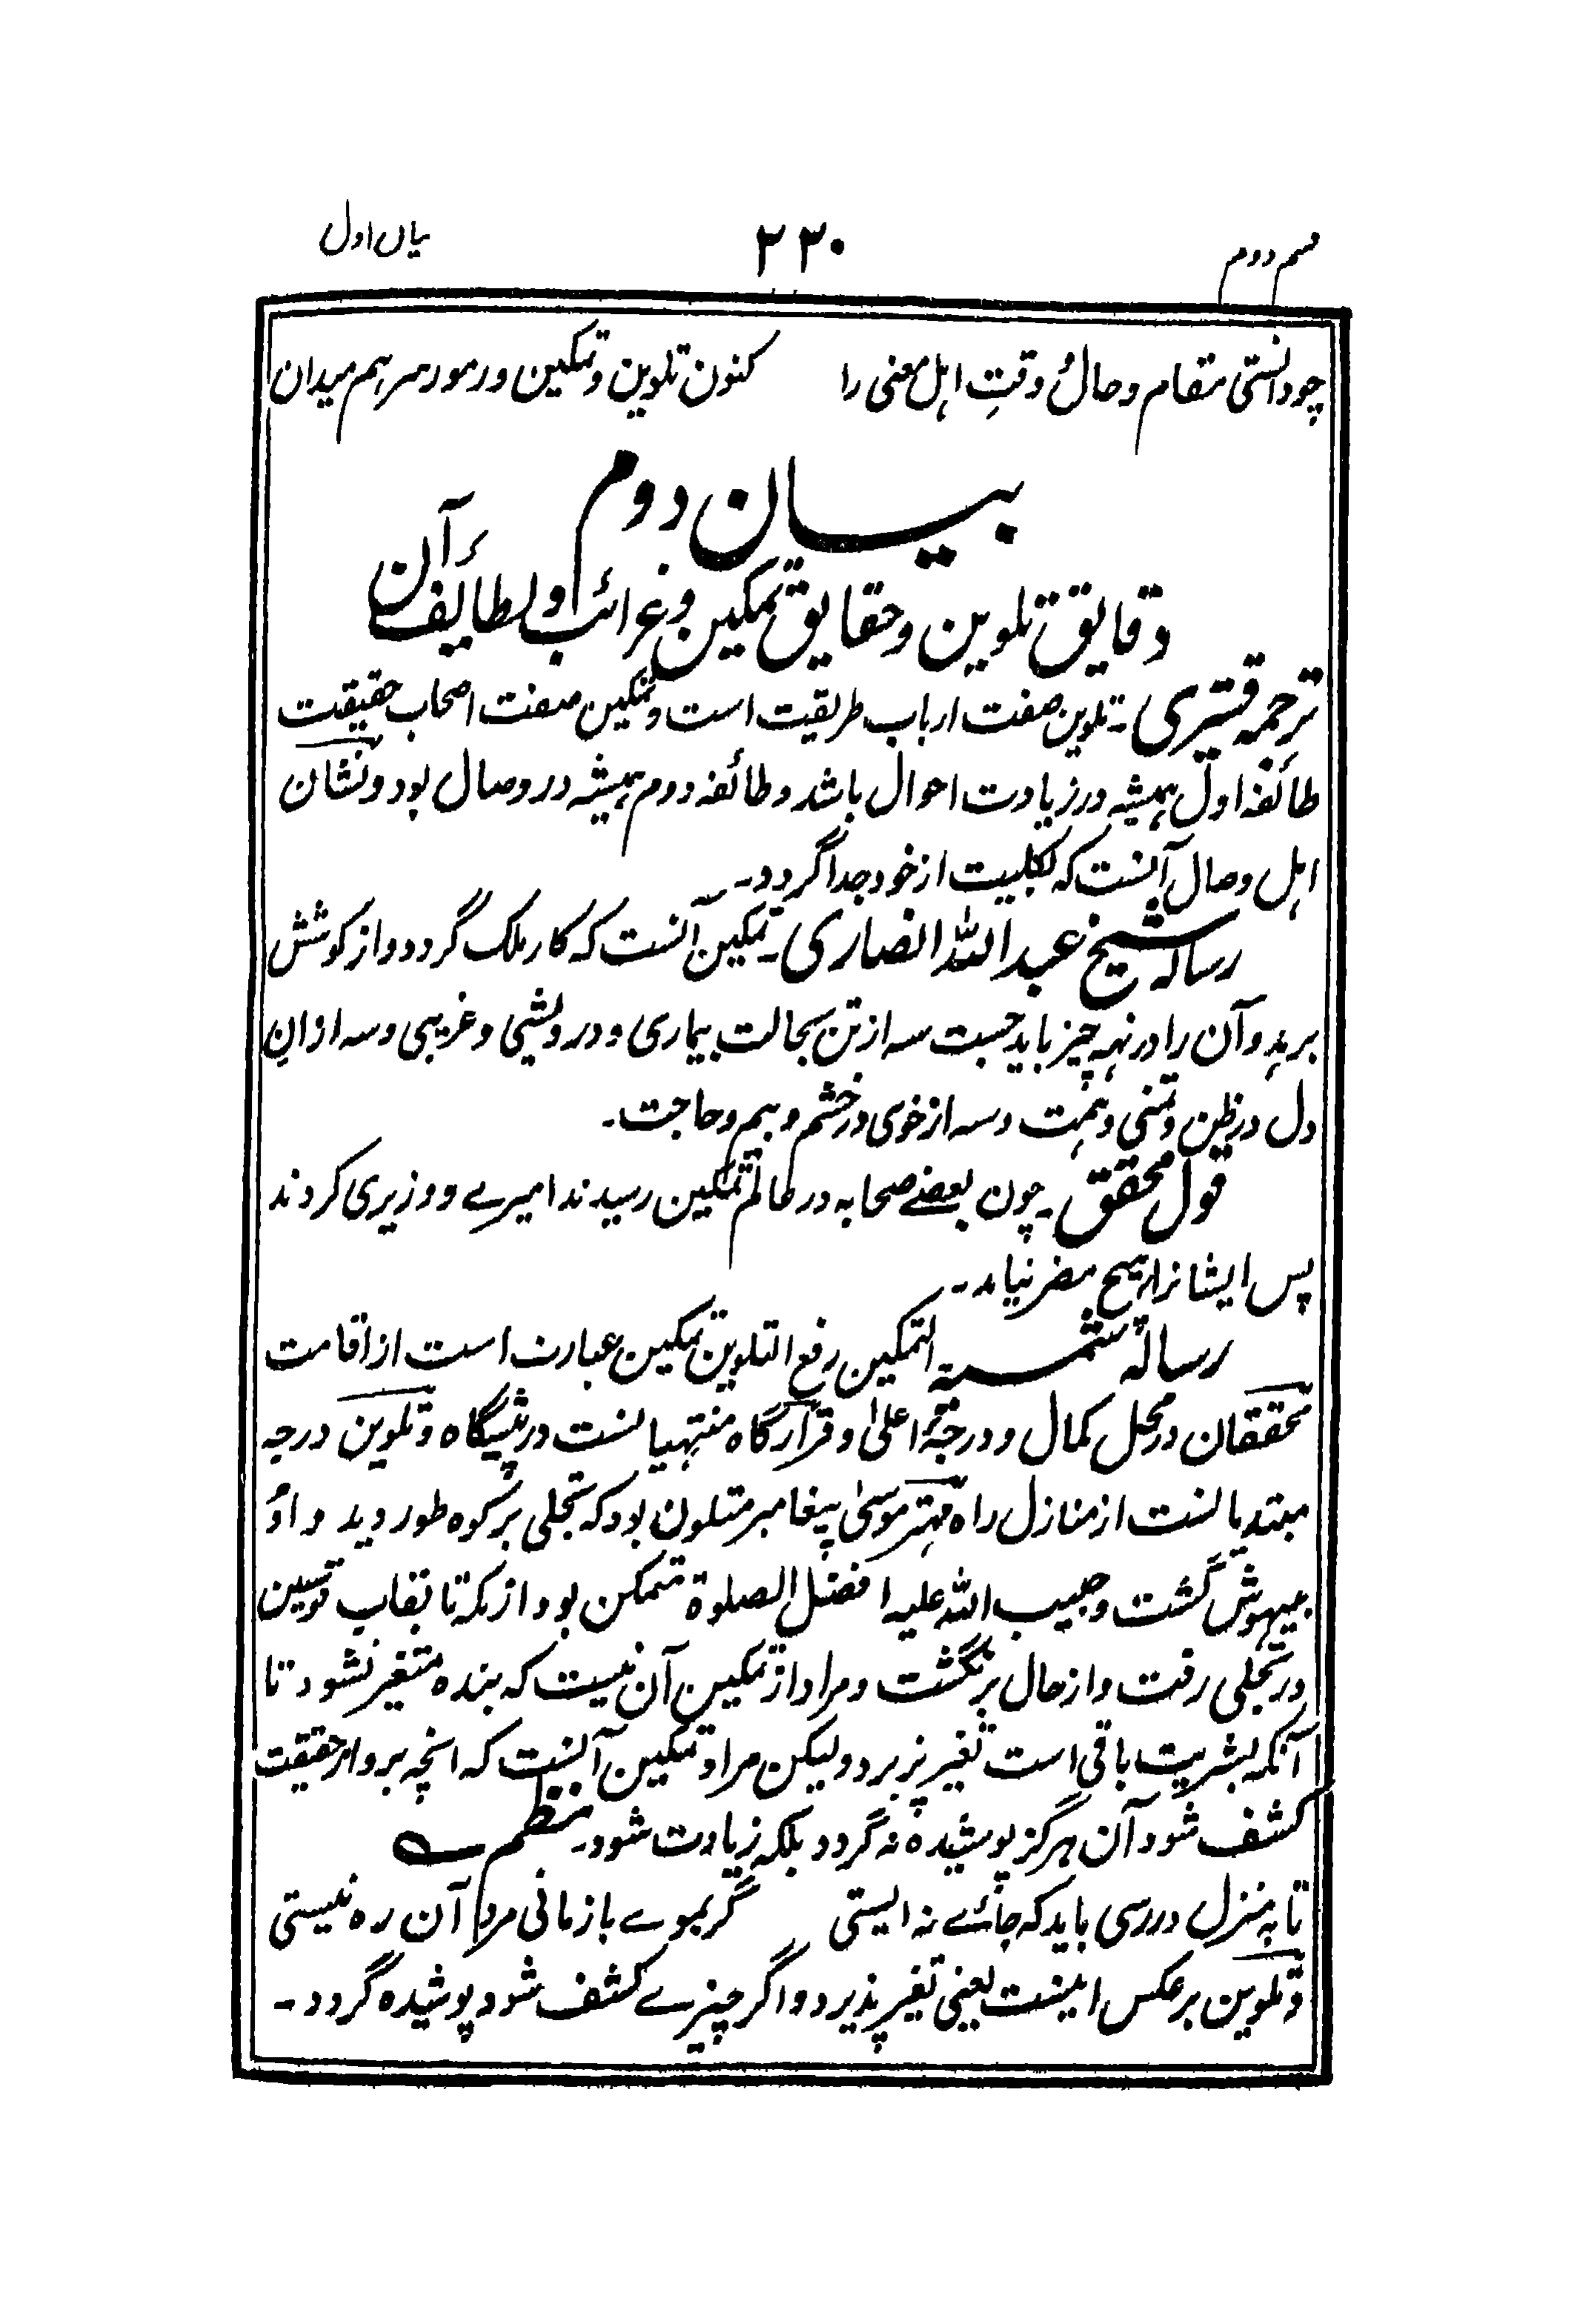 قسم دوم ۲۳۰ بیان اول
چو دانستی مقام و حال وقتِ اہل معنی را کنون تلوین و تمکین و رموز سر ہم میدان
بیان دوم
دقایق تلوین و حقایق تمکین و غرائب و لطایف آن
ترجمہ قشیری ۔ تلوین صفت ارباب طریقت است و تمکین صفت اصحاب حقیقت
طائفہ اول ہمیشہ در زیادت احوال باشد و طائفہ دوم ہمیشہ در وصال بود و نشان
اہل وصال آنست کہ بکلیت از خود جدا گردد۔
رسالہ شیخ عبداللہ انصاری ۔ تمکین آنست کہ کار ملک گردد و از کوشش
برہد و آن را در نہہ چیز باید جست سہ از تن بحالت بیماری و درویشی و غریبی و سہ از این
دل در ظن و تمنی و ہمت و سہ از خوی در خشم و بیم و حاجت۔
قول محقق ۔ چون بعضے صحابہ در عالم تمکین رسیدند امیرے و وزیری کردند
پس ایشانرا ہیچ مضر نیامد۔
رسالہ شمسیہ التمکین رفع التلوین تمکین عبارت است از اقامت
محققان در محل کمال و درجۂ اعلیٰ و قرارگاہ منتہیانست در پیشگاہ و تلوین درجہ
مبتدیانست از منازل راہ مہتر موسیٰ پیغامبر متلون بود کہ تجلی بر کوہ طور دید و او
بیہوش گشت و حبیب اللہ علیہ افضل الصلوۃ متمکن بود از مکہ تا بقاب قوسین
در تجلی رفت و از حال برنگشت و مراد از تمکین آن نیست کہ بندہ متغیر نشود تا
آنکہ بشریت باقی است تغیر پزیرد ولیکن مراد تمکین آنست کہ انچہ برو از حقیقت
کشف شود آن ہرگز پوشیدہ نہ گردد بلکہ زیادت شود۔ نظم
تا بہ منزل در رسی باید کہ جائے نہ ایستی گر بموے بازمانی مرد آن رہ نیستی
و تلوین برعکس اینست یعنی تغیر پذیرد و اگر چیزے کشف شود پوشیدہ گردد۔